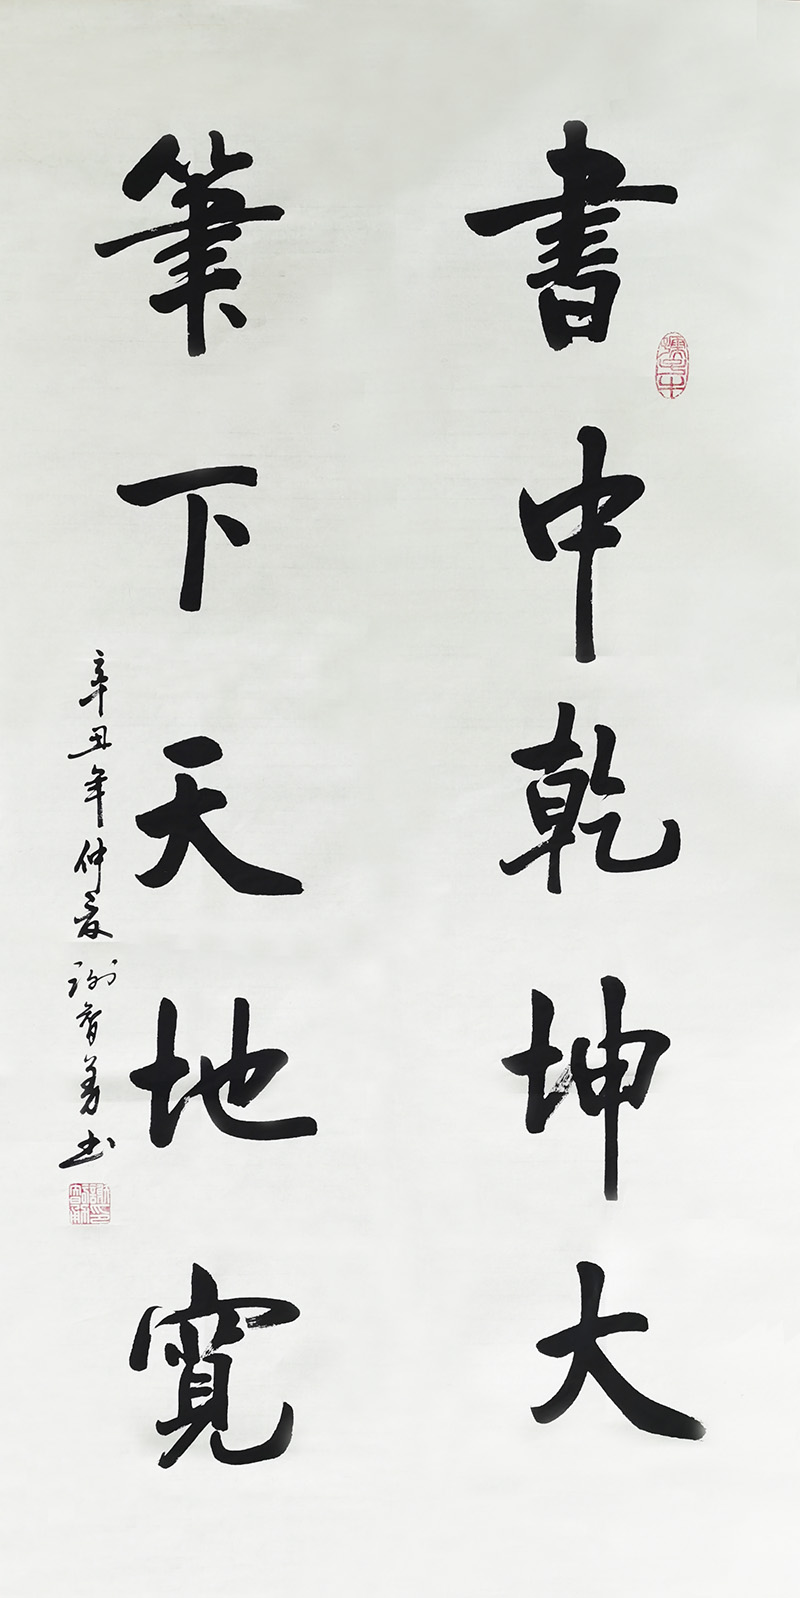 書中乾坤大
筆下天地寬
辛丑年仲夏謝智勇书